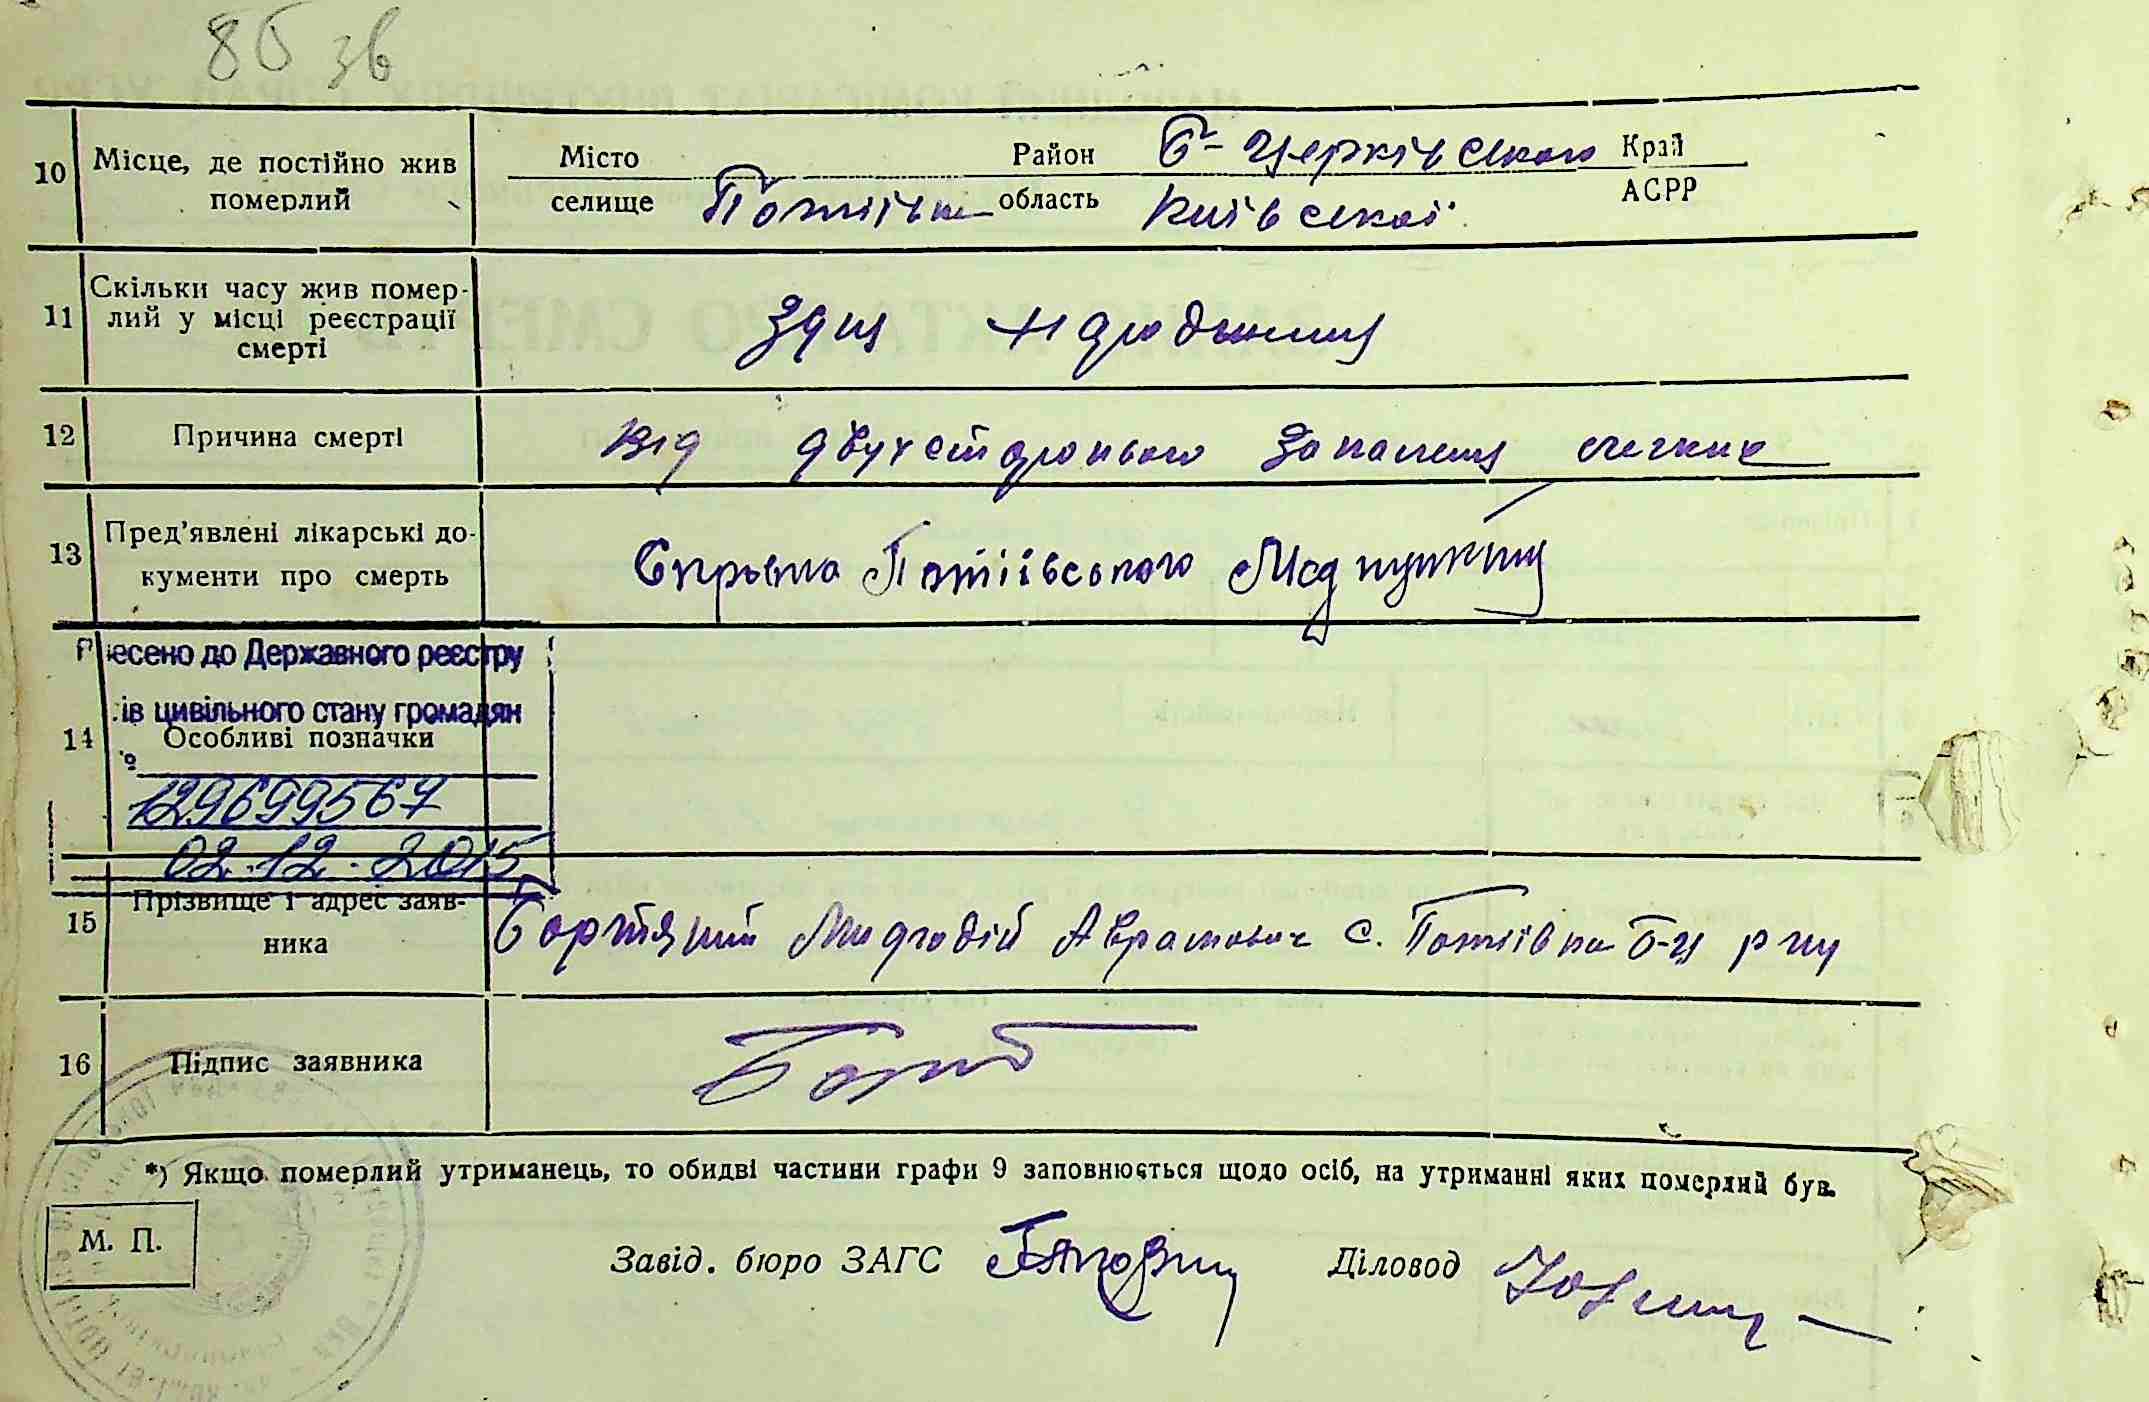 86 зв
10 Місце, де постійно жив померлий
Місто Район Б-Церківського Край
селище Потіївка область Київської АСРР
11 Скільки часу жив померлий у місці реєстрації смерті
З дня народження
12 Причина смерті
Від двухстороннього запалення легких
13 Пред'явлені лікарські документи про смерть
Справка Потіївського Медпункту
несено до Державного реєстру
ів цивільного стану громадян
14 Особливі позначки
129699567
02.12.2015
15 Прізвище і адрес заявника
Бортяний Аврамович с. Потіївка Б-Ц р-ну
16 Підпис заявника
Борт
*) Якщо померлий утриманець, то обидві частини графи 9 заповнюється щодо осіб, на утриманні яких померлий був.
М. П.
Завід. бюро ЗАГС Діловод